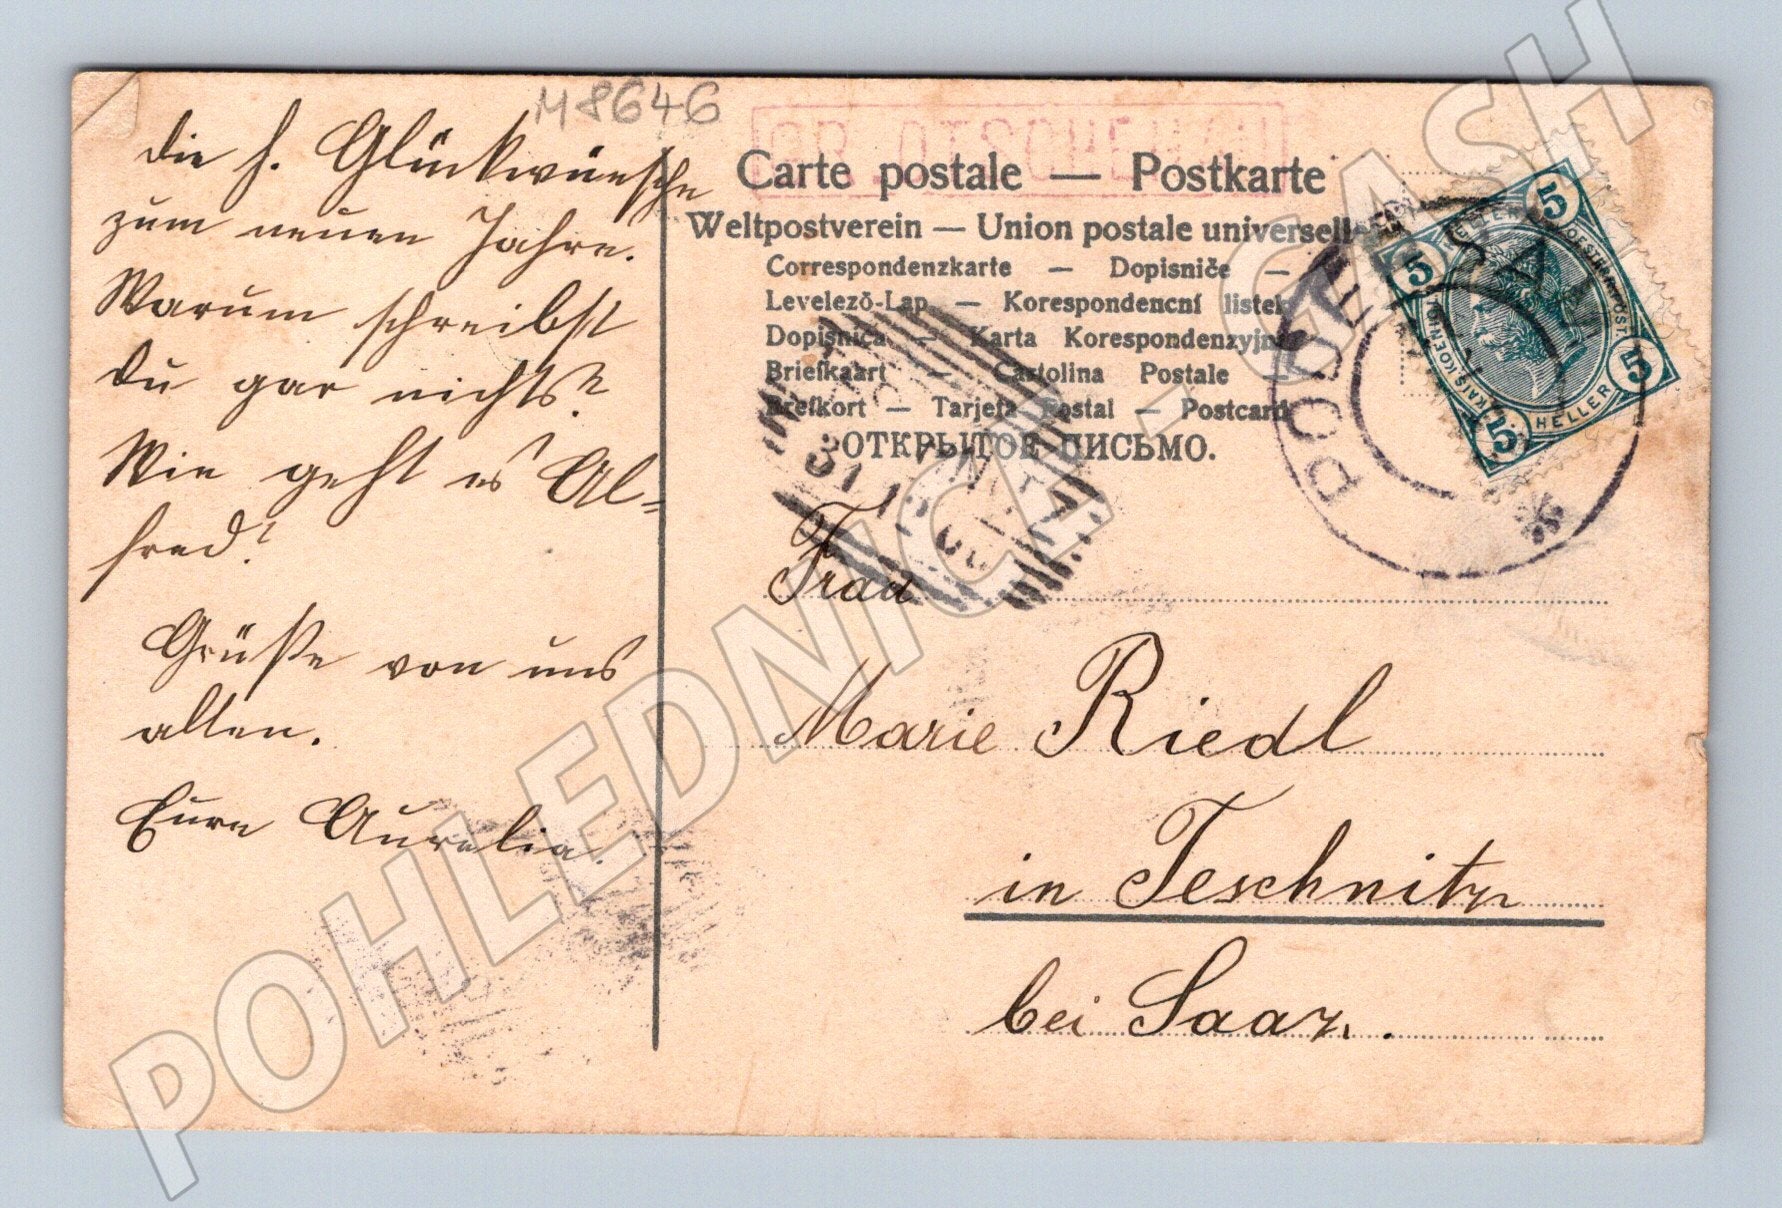 M 8646
die h. Glückwünsche
zum neuen Jahre.
Warum schreibst
du gar nichts?
Wie geht es Al-
fred?
Grüße von uns
allen.
Eure Aurelia.
Carte postale — Postkarte
Weltpostverein — Union postale universelle
Correspondenzkarte — Dopisniče —
Levelező-Lap — Korespondencni listek
Dopisnica — Karta Korespondenzyjna
Briefkaart — Cartolina Postale —
Brefkort — Tarjeta Postal — Postcard
ОТКРЫТОЕ ПИСЬМО.
5 HELLER 5
5 HELLER 5
PODERSAM
31 12
Frau
Marie Riedl
in Teschnitz
bei Saaz.
POHLEDNICA - GASH